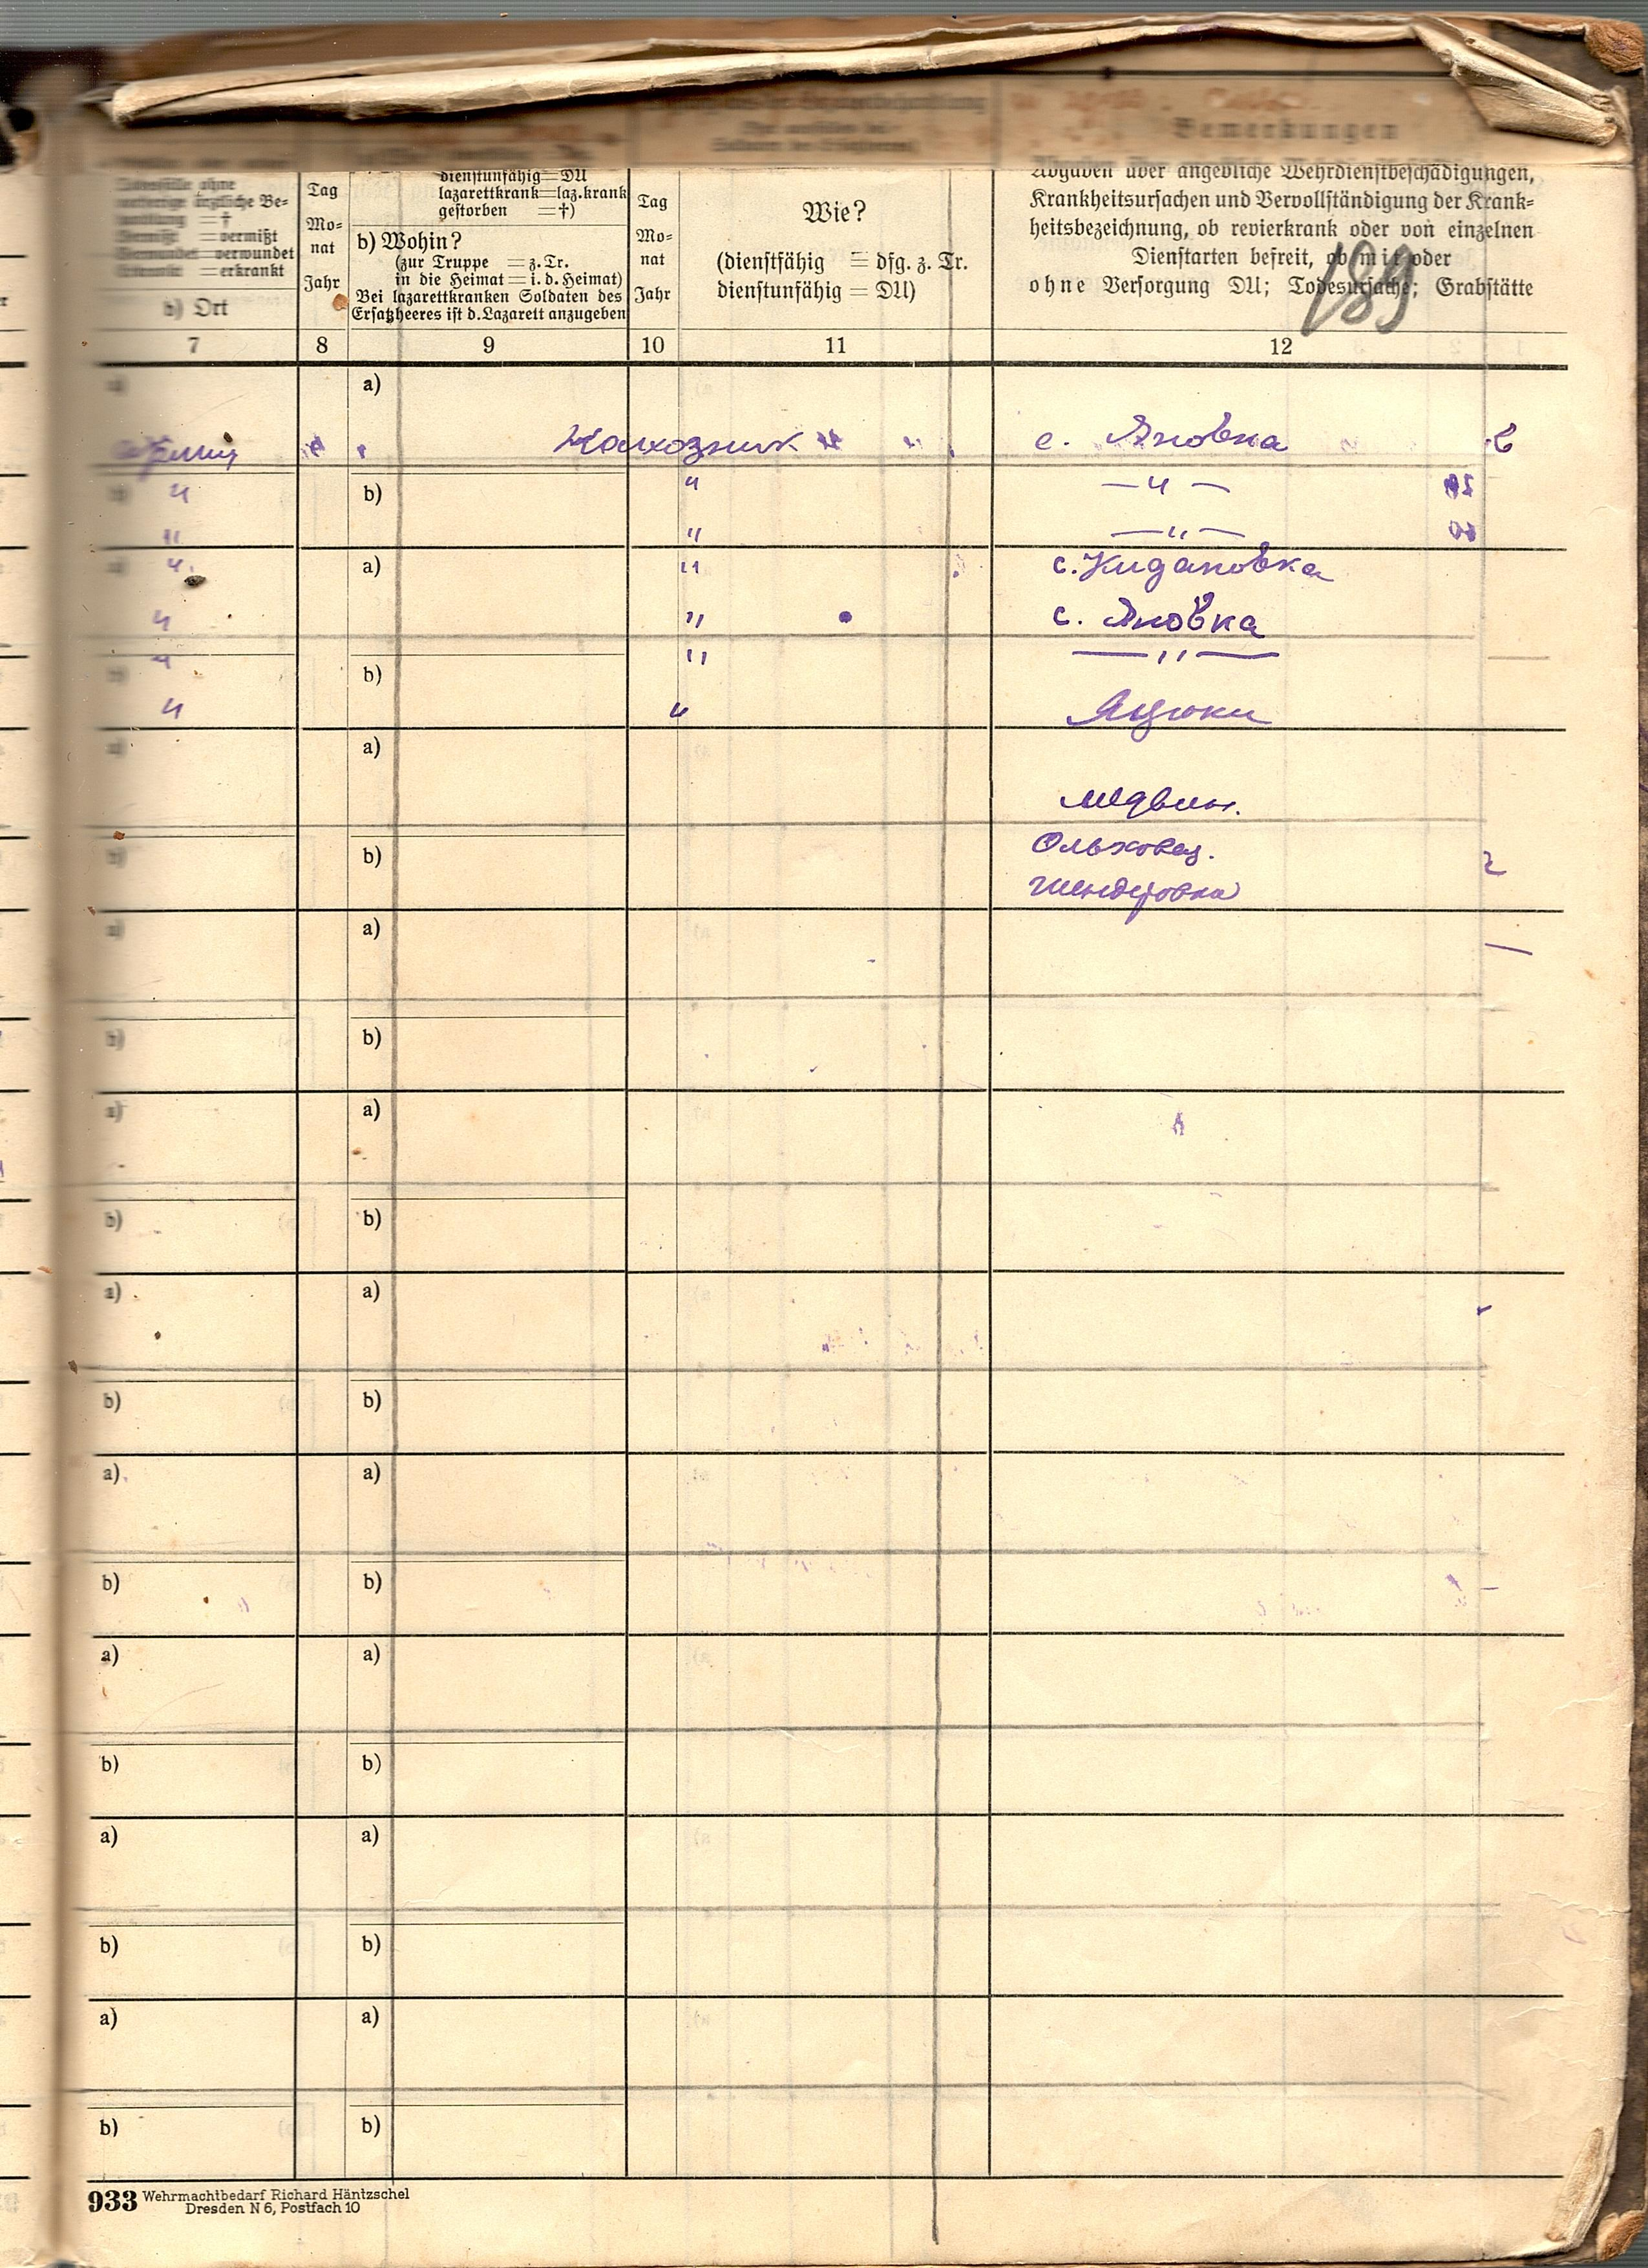 Bemerkungen
Angaben über angebliche Wehrdienstbeschädigungen,
Krankheitsursachen und Vervollständigung der Krank-
heitsbezeichnung, ob revierkrank oder von einzelnen
Dienstarten befreit, ob mit oder
ohne Versorgung DU; Todesursache; Grabstätte
189
ärztliche Be-
= †
= vermißt
= verwundet
= erkrankt
b) Ort
Tag
Mo-
nat
Jahr
dienstunfähig = DU
lazarettkrank = laz.krank
gestorben = †)
b) Wohin?
(zur Truppe = z. Tr.
in die Heimat = i. d. Heimat)
Bei lazarettkranken Soldaten des
Ersatzheeres ist d. Lazarett anzugeben
Tag
Mo-
nat
Jahr
Wie?
(dienstfähig = dfg. z. Tr.
dienstunfähig = DU)
7 8 9 10 11 12
a) a)
Колхозник с. Яновка
b) " b) " — " —
" " — " —
a) " a) " с. Кидановка
" " с. Яновка
" " — " —
b) b)
" " Яцюки
a) a)
Медвин.
b) b) Ольховец.
Шендеровка
a) a)
b) b)
a) a)
b) b)
a) a)
b) b)
a) a)
b) b)
a) a)
b) b)
a) a)
b) b)
a) a)
b) b)
933 Wehrmachtbedarf Richard Häntzschel
Dresden N 6, Postfach 10